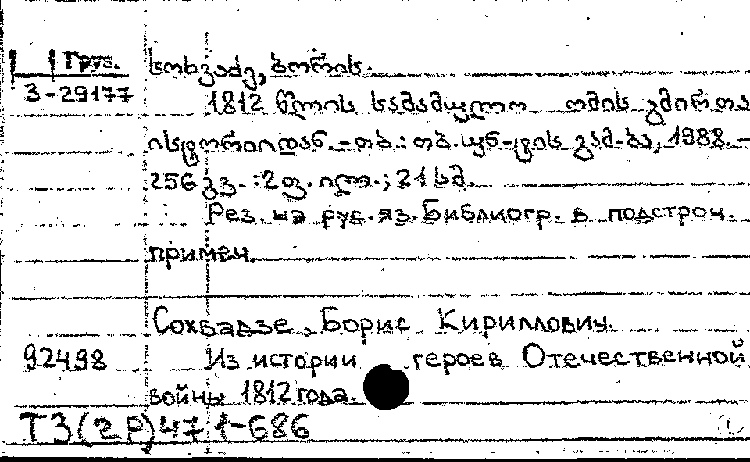 Груз. სოხვაძე, ბორის.
3-29177
1812 წლის სამამულო ომის გმირთა
ისტორიიდან. - თბ.: თბ. უნ-ტის გამ-ბა, 1988. -
256 გვ. : 2 ფ. ილ. ; 21 სმ.
Рез. на рус. яз. Библиогр. в подстроч.
примеч.
Сохвадзе, Борис Кириллович.
92498 Из истории героев Отечественной
войны 1812 года.
Т3(2Р)47 1-686